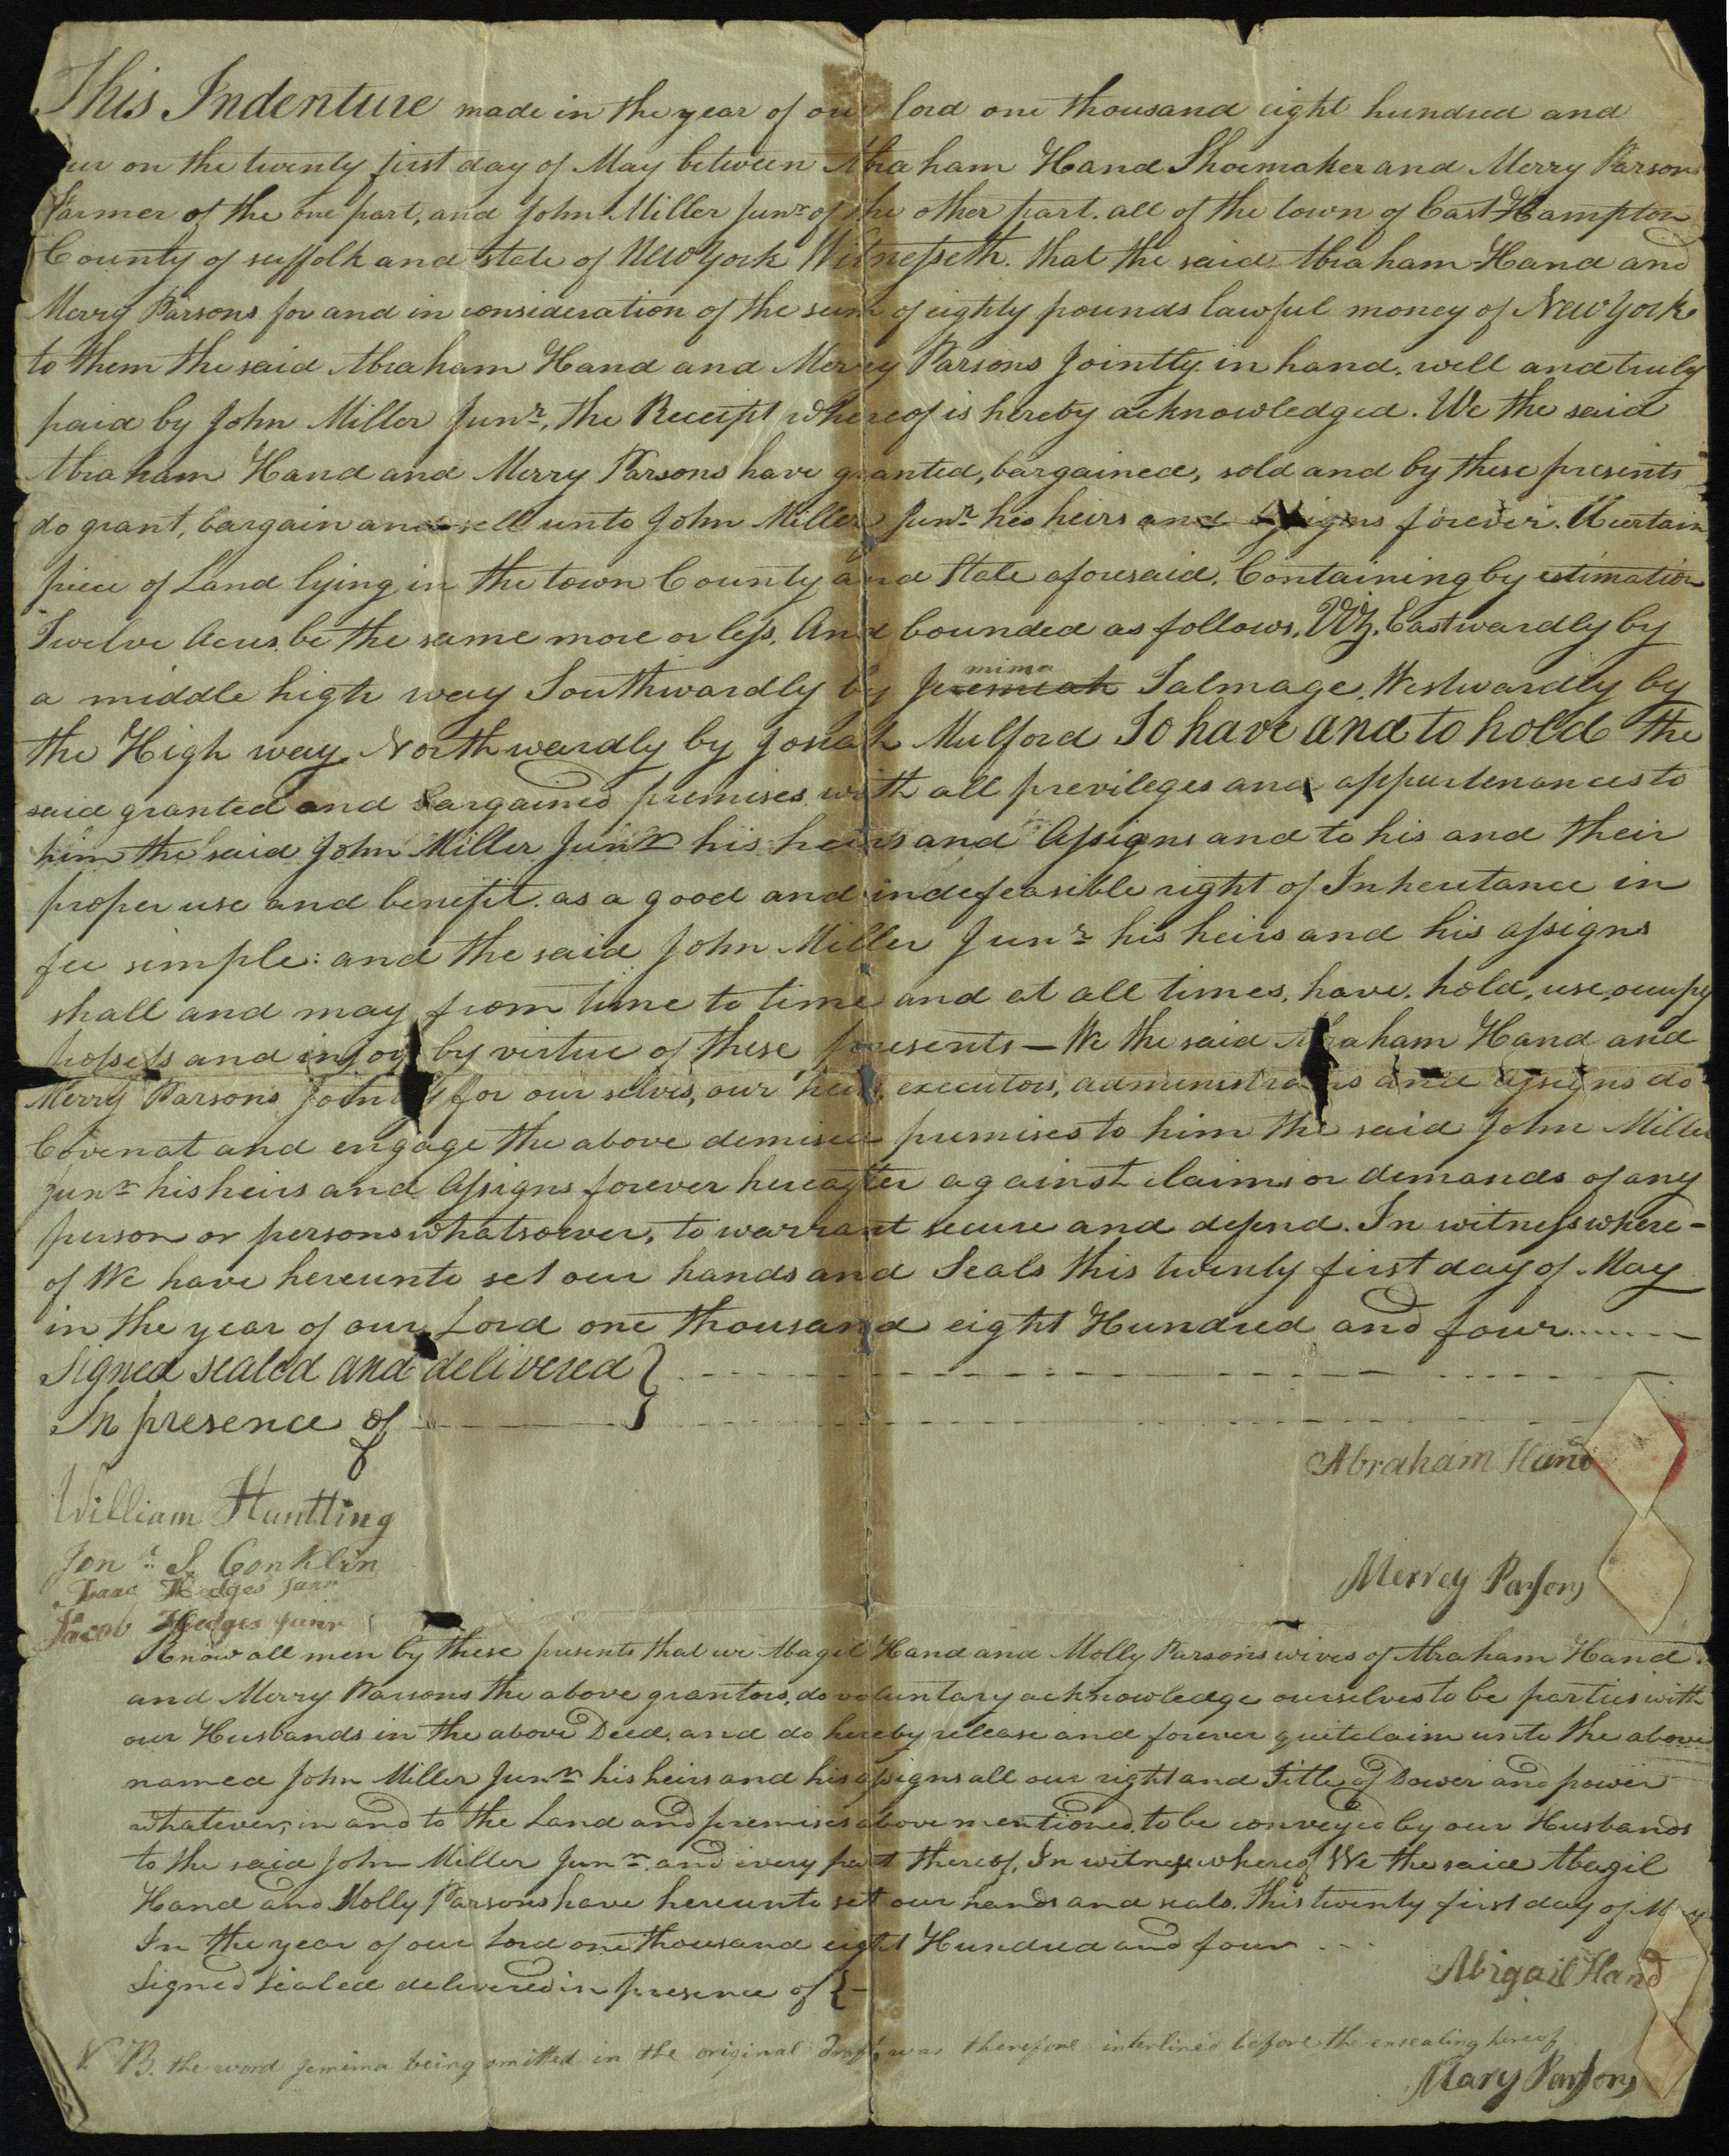 This Indenture made in the year of our lord one thousand eight hundred and
ur on the twenty first day of May between Abraham Hand Shoemaker and Merry Parsons
Farmer of the one part, and John Miller Junr of the other part. all of the town of East-Hampton
County of suffolk and state of New York Witnesseth. that the said Abraham Hand and
Merry Parsons for and in consideration of the sum of eighty pounds lawful money of New York
to them the said Abraham Hand and Merry Parsons Jointly in hand. well and truly
paid by John Miller Junr, the Receipt whereof is hereby acknowledged. We the said
Abraham Hand and Merry Parsons have granted, bargained, sold and by these presents
do grant, bargain and sell unto John Miller Junr his heirs and assigns forever. A certain
piece of Land lying in the town County and State aforesaid. Containing by estimation
Twelve Acres. be the same more or less. And bounded as follows. Viz. Eastwardly by
mima
a middle high way Southwardly by Jeremiah Talmage. Westwardly by
the High way. Northwardly by Josiah Mulford To have and to hold the
said granted and bargained premises with all previleges and appurtenances to
him the said John Miller Junr his heirs and Assigns and to his and their
proper use and benefit. as a good and indefeasible right of Inheritance in
fee simple: and the said John Miller Junr his heirs and his assigns
shall and may from time to time and at all times, have, hold, use, occupy
possess and injoy by virtue of these presents — We the said Abraham Hand and
Merry Parsons Jointly for our selves, our heirs, executors, administrators and assigns do
Covenat and engage the above demised premises to him the said John Miller
Junr his heirs and Assigns forever hereafter against claims or demands of any
person or persons whatsoever, to warrant secure and defend. In witness where-
of We have hereunto set our hands and Seals this twenty first day of May
in the year of our Lord one thousand eight Hundred and four
Signed sealed and delivered }
In presence of
Abraham Hand
William Huntting
Jonr S. Conklin
Merrey Parsons
Isaac Hedges Junr
Jacob Hedges Junr
Know all men by these presents that we Abagil Hand and Molly Parsons wives of Abraham Hand
and Merry Parsons the above grantors, do voluntary acknowledge ourselves to be parties with
our Husbands in the above Deed, and do hereby release and forever quitclaim unto the above
named John Miller Junr his heirs and his assigns all our right and Title of Dower and power
whatever, in and to the Land and premises above mentioned. to be conveyed by our Husbands
to the said John Miller Junr. and every part thereof. In witness whereof We the said Abagil
Hand and Molly Parsons have hereunto set our hands and seals. This twenty first day of May
In the year of our Lord one thousand eight Hundred and four
Signed Sealed delivered in presence of {
Abigail Hand
N B. the word Jemima being omitted in the original was therefore interlined before the ensealing hereof
Mary Parsons